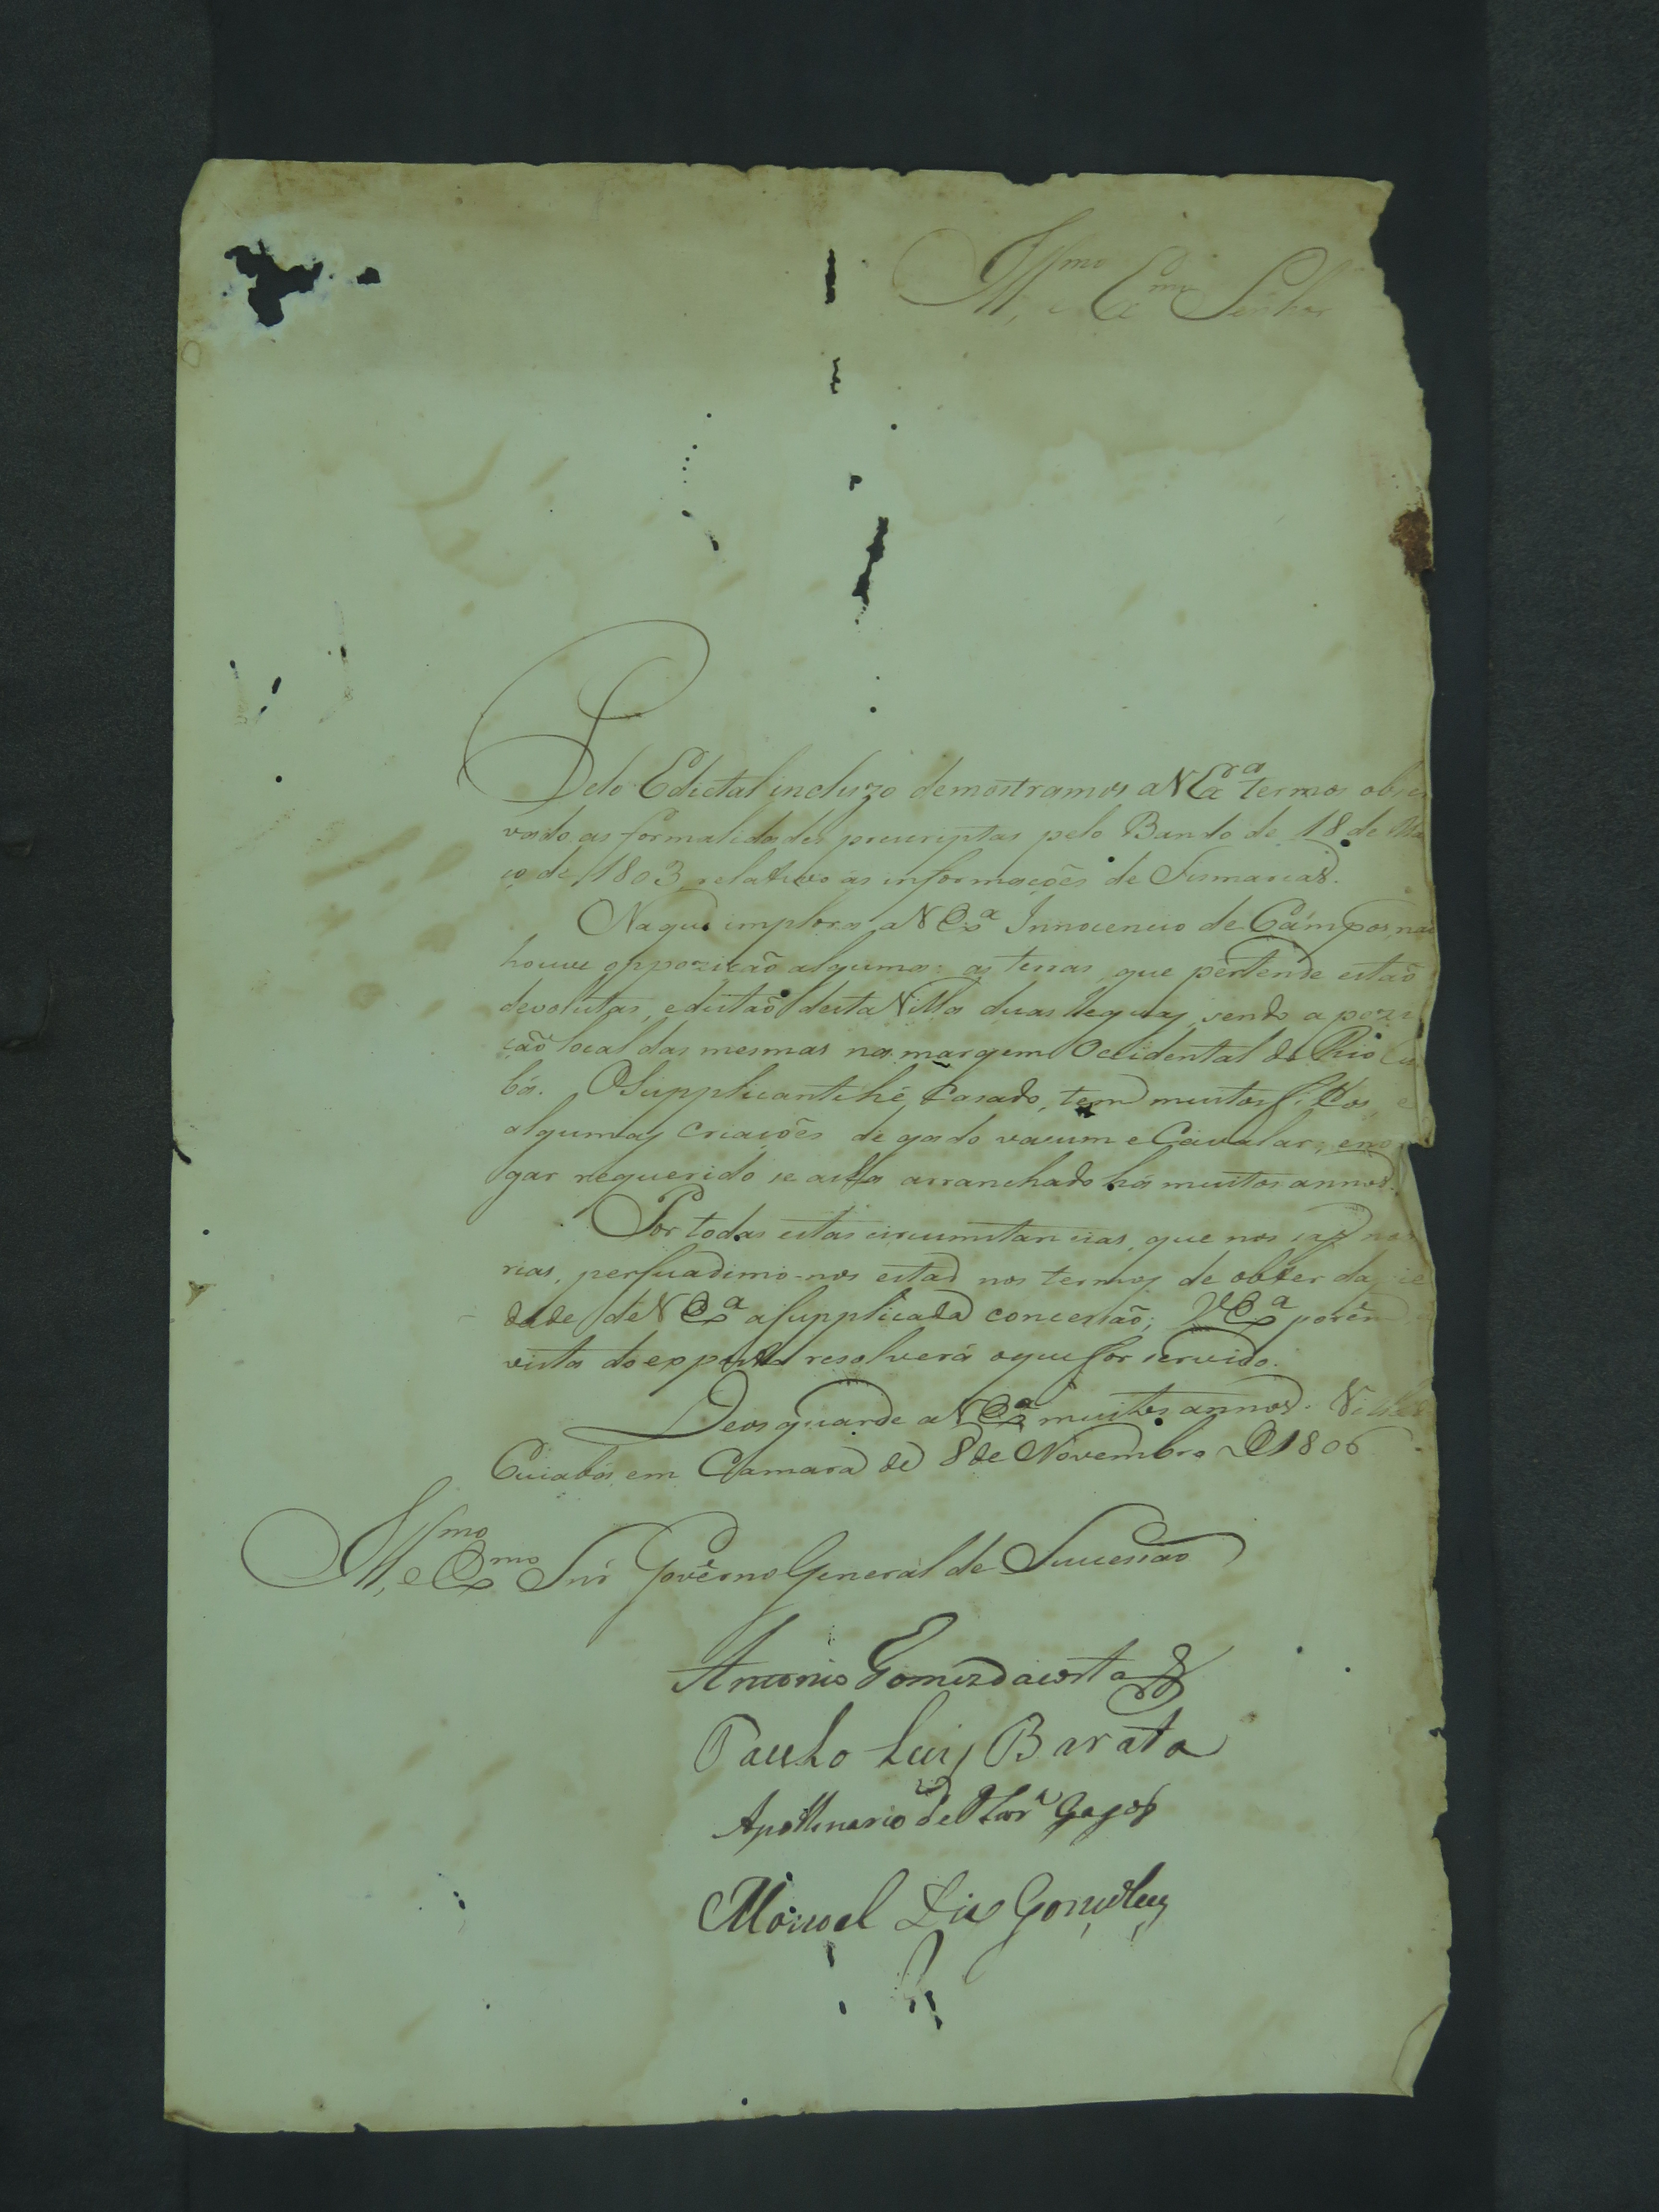 Ill.mo e Ex.mo Senhor
Pelo Edictal incluzo demostramos a V Ex.ca termos obser
vado as formalidades prescriptas pelo Bando de 18 de Ma
ço de 1803, relativo ás informações de Sismarias.
Na que implora a V Ex.a Innocencio de Campos, não
houve oppozicão alguma: as terras que pertende estaõ
devolutas, e distaõ desta Villa duas legoas, sendo a pozi
ção local das mesmas na margem Occidental do Rio Cu
bá. O Supplicante hé Casado, tem muitos filhos, e
algumas criações de gado vacum e Cavalar; e no
gar requerido se acha arranchado há muitos annos.
Por todas estas circumstancias, que nos saõ no
rias, persuadimo-nos estar nos termos de obter da
dade de V Ex.a a supplicada concessaõ; V Ex.a porêm
vista do exposto resolverá o que for servido.
Deos guarde a V Ex.a muitos annos. Villa
Cuiabá, em Camara de 8 de Novembro de 1806
Ill.mo e Ex.mo Snr Govêrno General de Sucessaõ
Antonio Gomes da Costa
Paulo Luis Barata
Apollinario de
Manoel Dias